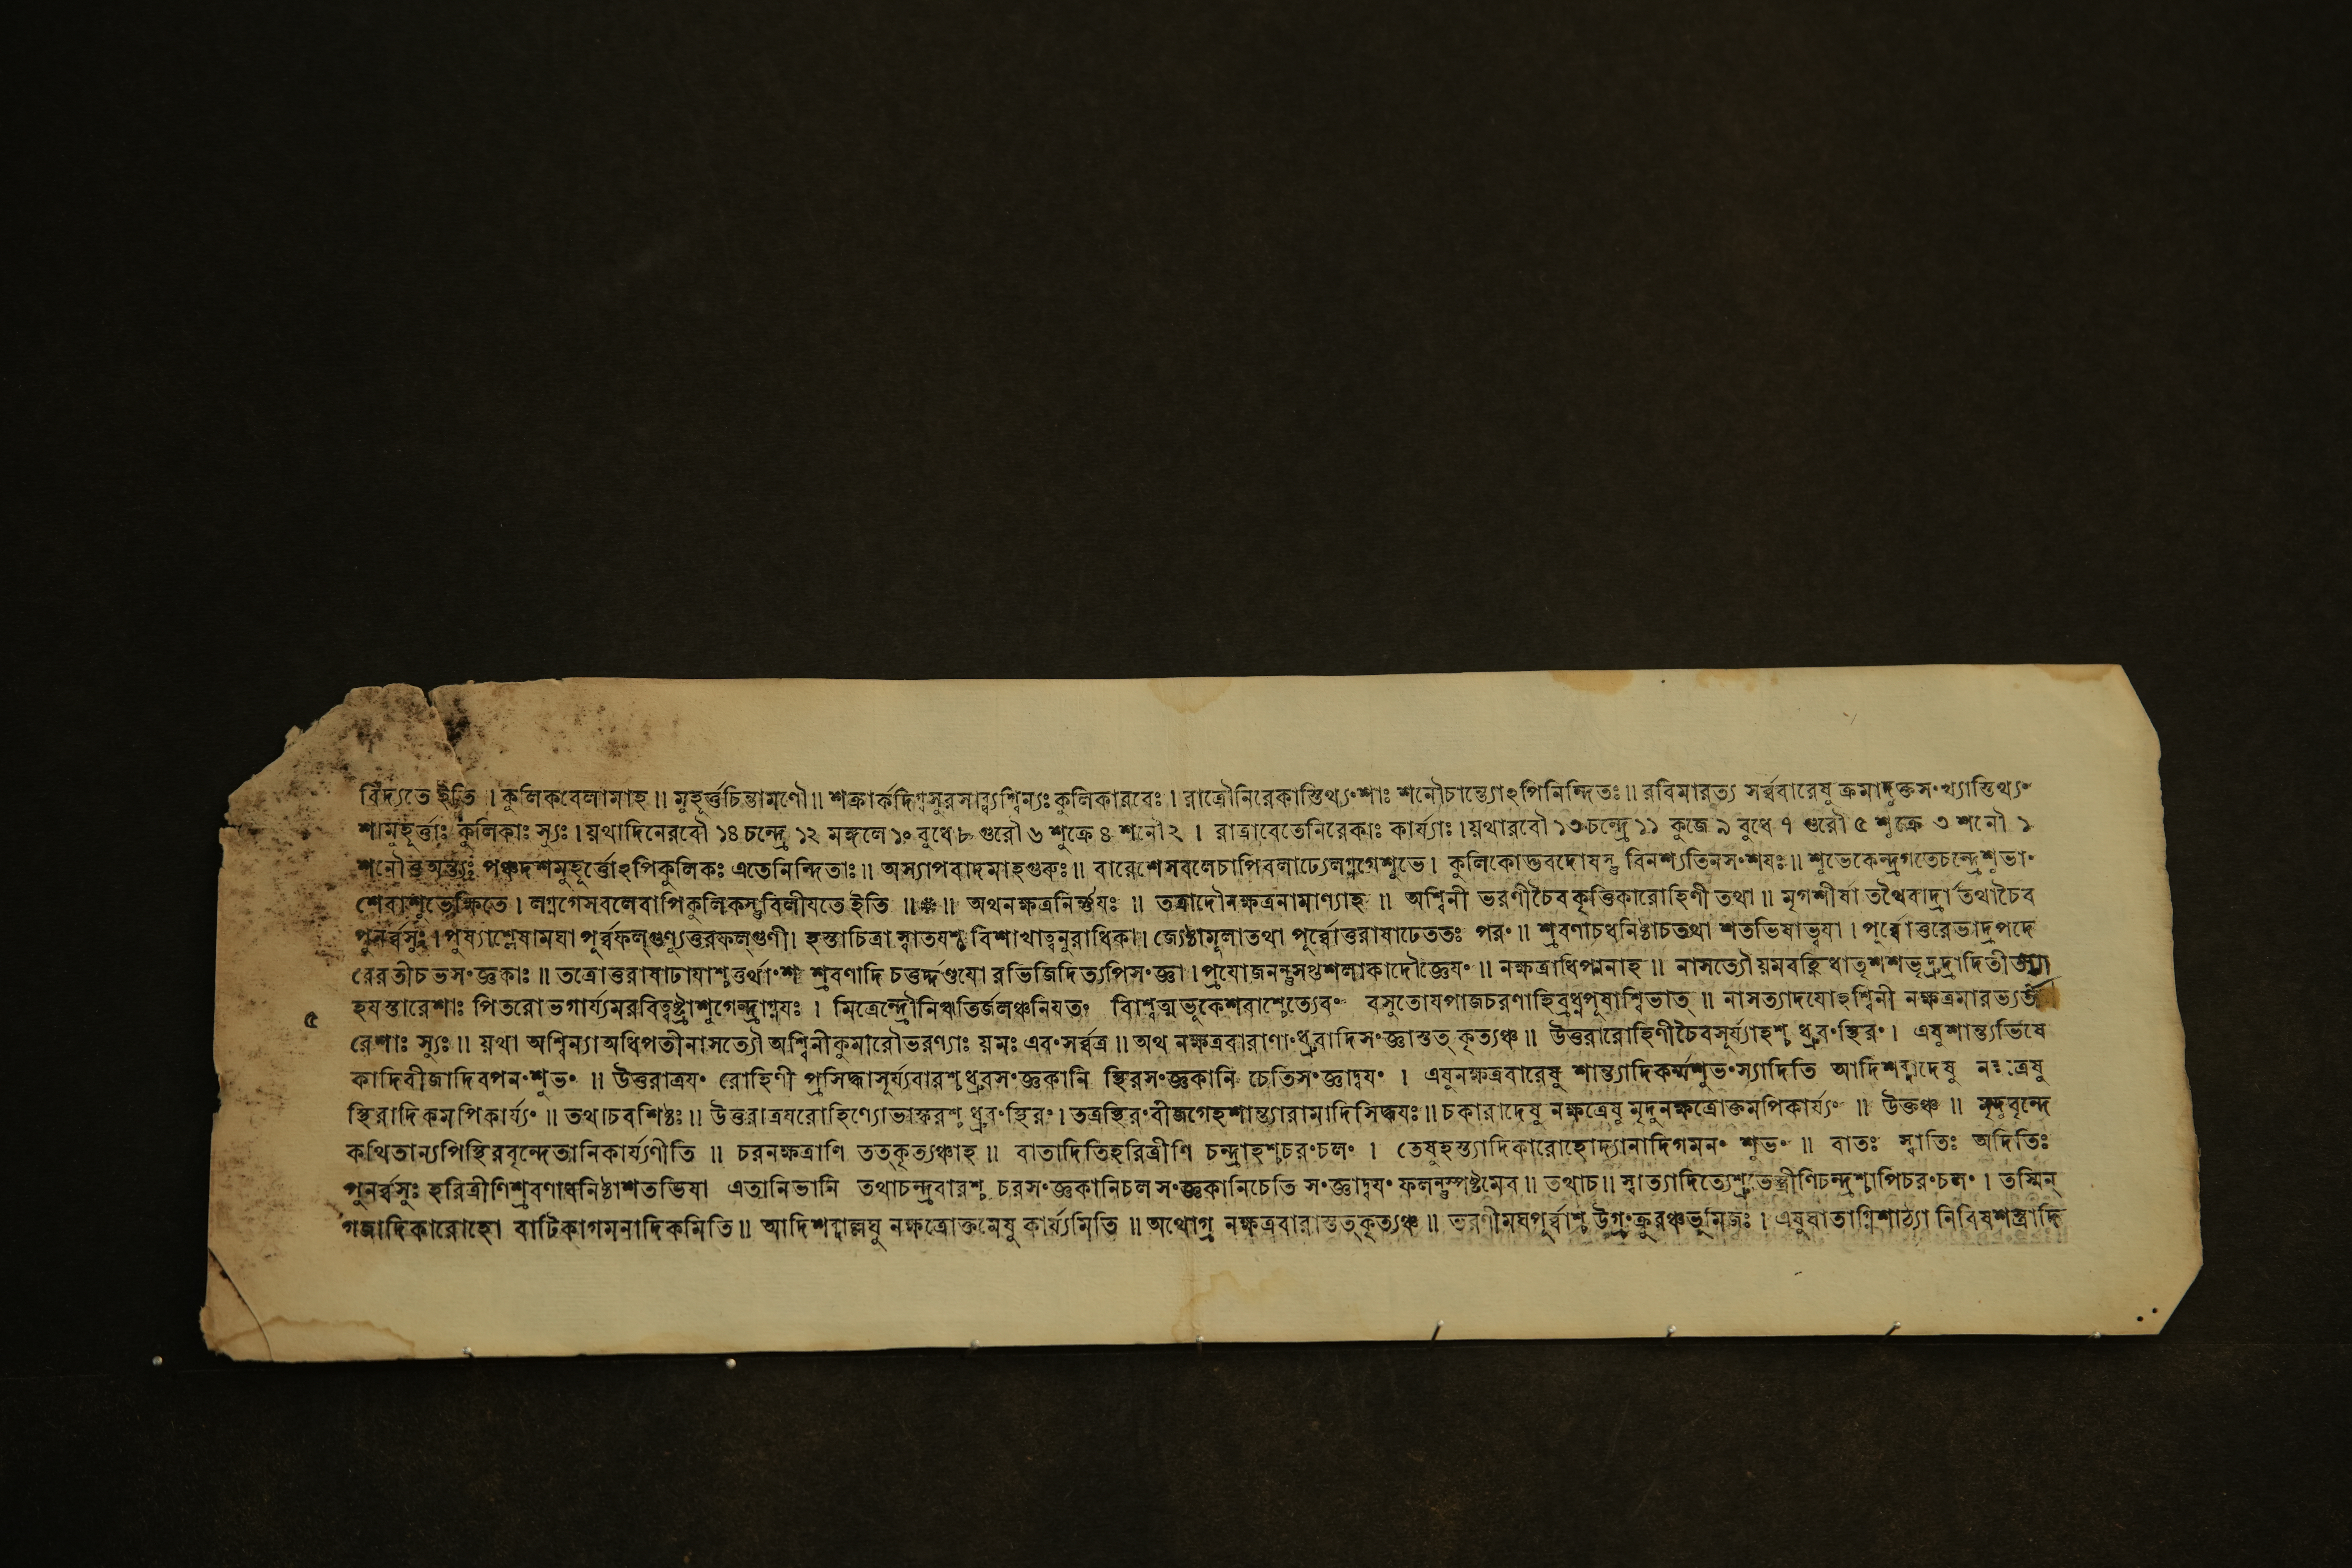 বিদ্যতে ইতি । কুলিকবেলামাহ ॥ মুহূর্ত্তচিন্তামণৌ ॥ শক্রার্কদিগ্বসুরসাব্ধ্যশ্বিন্যঃ কুলিকারবেঃ । রাত্রৌনিরেকাস্তিথ্যংশাঃ শনৌচান্ত্যোঽপিনিন্দিতঃ ॥ রবিমারভ্য সর্ব্ববারেষু ক্রমাদুক্তসংখ্যাস্তিথ্যং
শামুহূর্ত্তাঃ কুলিকাঃ স্যুঃ । য়থাদিনেরবৌ ১৪ চন্দ্রে ১২ মঙ্গলে ১০ বুধে ৮ গুরৌ ৬ শুক্রে ৪ শনৌ ২ । রাত্রাবেতেনিরেকাঃ কার্য্যাঃ । য়থারবৌ ১৩ চন্দ্রে ১১ কুজে ৯ বুধে ৭ গুরৌ ৫ শুক্রে ৩ শনৌ ১
শনৌতু অন্ত্যঃ পঞ্চদশমুহূর্ত্তোঽপিকুলিকঃ এতেনিন্দিতাঃ ॥ অস্যাপবাদমাহগুরুঃ ॥ বারেশেসবলেচাপিবলাঢ্যেলগ্নগেশুভে । কুলিকোদ্ভবদোষস্তু বিনশ্যতিনসংশযঃ ॥ শুভেকেন্দ্রগতেচন্দ্রেশুভাং
শেবাশুভেক্ষিতে । লগ্নগেসবলেবাপিকুলিকস্তুবিলীযতে ইতি ॥ ॥ অথনক্ষত্রনির্ণ্ণযঃ ॥ তত্রাদৌনক্ষত্রনামাণ্যাহ ॥ অশ্বিনী ভরণীচৈব কৃত্তিকারোহিণী তথা ॥ মৃগশীর্ষা তথৈবার্দ্রা তথাচৈব
পুনর্ব্বসুঃ । পুষ্যাশ্লেষামঘা পূর্ব্বফল্গুণ্যুত্তরফল্গুণী । হস্তাচিত্রা স্বাতযশ্চ বিশাখাত্বনুরাধিকা । জ্যেষ্ঠামূলাতথা পূর্ব্বোত্তরাষাঢেততঃ পরং ॥ শ্রবণাচধনিষ্ঠাচতথা শতভিষাভ্বযা । পূর্ব্বোত্তরেভাদ্রপদে
রেবতীচ ভসংজ্ঞকাঃ ॥ তত্রোত্তরাষাঢাযাশ্চতুর্থাংশ শ্রবণাদি চতুর্দ্দণ্ডযো রভিজিদিত্যপিসংজ্ঞা । প্রযোজনন্তুসপ্তশলাকাদৌজ্ঞেযং ॥ নক্ষত্রাধিপানাহ ॥ নাসত্যৌ য়মবহ্নিধাতৃশশভৃদ্রুদ্রাদিতীজ্যা
হযস্তারেশাঃ পিতরো ভগার্য্যমরবিত্বষ্ট্রাশুগেন্দ্রাগ্নযঃ । মিত্রেন্দ্রৌনিঋতির্জলঞ্চনিযতং বসুতোযপাজচরণাহির্বুধ্নপূষাশ্বিভাত্ ॥ নাসত্যাদযোঽশ্বিনী নক্ষত্রমারভ্যত
৫
রেশাঃ স্যুঃ ॥ য়থা অশ্বিন্যা অধিপতীনাসত্যৌ অশ্বিনীকুমারৌভরণ্যাঃ য়মঃ এবংসর্ব্বত্র ॥ অথ নক্ষত্রবারাণাংধ্রুবাদিসংজ্ঞাস্তত্ কৃত্যঞ্চ ॥ উত্তরারোহিণীচৈবসূর্য্যাহশ্চ ধ্রুবংস্থিরং । এষুশান্ত্যভিষে
কাদিবীজাদিবপনংশুভং ॥ উত্তরাত্রযং রোহিণী প্রসিদ্ধাসূর্য্যবারশ্চ ধ্রুবসংজ্ঞকানি স্থিরসংজ্ঞকানি চেতিসংজ্ঞাদ্বযং । এষুনক্ষত্রবারেষু শান্ত্যাদিকর্ম্মশুভংস্যাদিতি আদিশব্দাদেষু
স্থিরাদিকমপিকার্য্যং ॥ তথাচবশিষ্ঠঃ ॥ উত্তরাত্রযরোহিণ্যোভাস্করশ্চ ধ্রুবংস্থিরং । তত্রস্থিরংবীজগেহশান্ত্যারামাদিসিদ্ধযঃ ॥ চকারাদেষু নক্ষত্রেষু মৃদুনক্ষত্রোক্তমপিকার্য্যং ॥ উক্তঞ্চ ॥ মৃদুবৃন্দে
কথিতান্যপিস্থিরবৃন্দেতানিকার্য্যণীতি ॥ চরনক্ষত্রাণি তত্কৃত্যঞ্চাহ ॥ বাতাদিতিহরিত্রীণি চন্দ্রাহশ্চরংচলং । তেষুহস্ত্যাদিকারোহোদ্যানাদিগমনং শুভং ॥ বাতঃ স্বাতিঃ অদিতিঃ
পুনর্ব্বসুঃ হরিত্রীণিশ্রবণাধনিষ্ঠাশতভিষা এতানিভানি তথাচন্দ্রবারশ্চ চরসংজ্ঞকানিচলসংজ্ঞকানিচেতি সংজ্ঞাদ্বযং ফলন্তুস্পষ্টমেব ॥ তথাচ ॥ স্বাত্যাদিত্যেশ্রুতেস্ত্রীণিচন্দ্রশ্চাপিচরংচলং । তস্মিন্
গজাদিকারোহো বাটিকাগমনাদিকমিতি ॥ আদিশব্দাল্লঘু নক্ষত্রোক্তমেষু কার্য্যমিতি ॥ অথোগ্র নক্ষত্রবারাস্তত্কৃত্যঞ্চ ॥ ভরণীমঘপূর্ব্বাশ্চ উগ্রংক্রুরঞ্চভূমিজঃ । এষুঘাতাগ্নিশাঠ্যা নিবিষশস্ত্রাদি